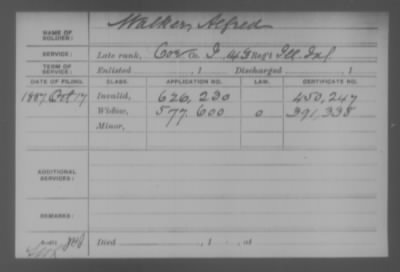 NAME OF SOLDIER: Walker, Alfred
SERVICE: Late rank, Cor Co. I, 45 Reg't Ill. Inf.
TERM OF SERVICE: Enlisted , 1 Discharged , 1
DATE OF FILING. CLASS. APPLICATION NO. LAW. CERTIFICATE NO.
1887 Oct 17 Invalid, 626,230 450,247
Widow, 577,600 0 391,338
Minor,
ADDITIONAL SERVICES:
REMARKS:
Died , 1 , at